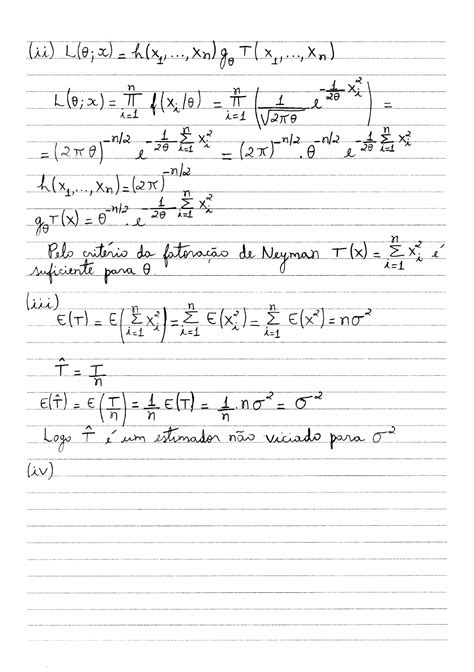 (ii) L(θ;x) = h(x₁,...,xₙ) g_θ T(x₁,...,xₙ)
L(θ;x) = ∏_{i=1}^{n} f(xᵢ/θ) = ∏_{i=1}^{n} ( 1/√(2πθ) e^{-1/(2θ) xᵢ²} ) =
= (2πθ)^{-n/2} e^{-1/(2θ) Σ_{i=1}^{n} xᵢ²} = (2π)^{-n/2} . θ^{-n/2} e^{-1/(2θ) Σ_{i=1}^{n} xᵢ²}
h(x₁,...,xₙ) = (2π)^{-n/2}
g_θ T(x) = θ^{-n/2} . e^{-1/(2θ) Σ_{i=1}^{n} xᵢ²}
Pelo critério da fatoração de Neyman T(x) = Σ_{i=1}^{n} xᵢ² é
suficiente para θ
(iii)
E(T) = E( Σ_{i=1}^{n} xᵢ² ) = Σ_{i=1}^{n} E(xᵢ²) = Σ_{i=1}^{n} E(x²) = nσ²
T̂ = T/n
E(T̂) = E(T/n) = 1/n E(T) = 1/n . nσ² = σ²
Logo T̂ é um estimador não viciado para σ²
(iv)